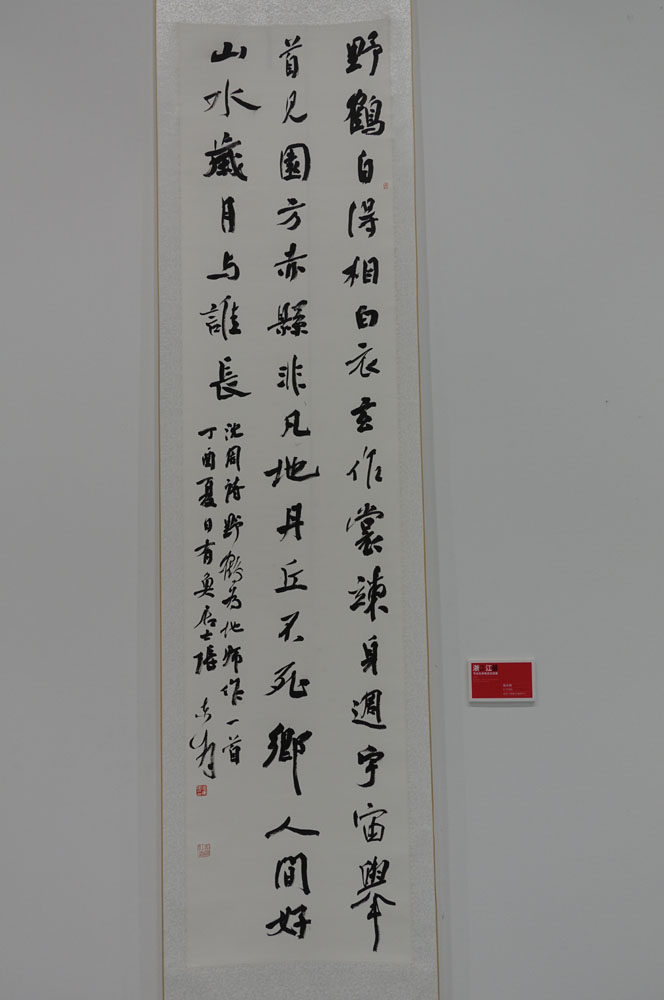 野鶴自得相白衣玄作裳竦身週宇宙舉
首見圓方赤縣非凡地丹丘不死鄉人間好
山水歲月与誰長
沈周詩野鶴為地師作一首
丁酉夏日有奐居士張
浙江